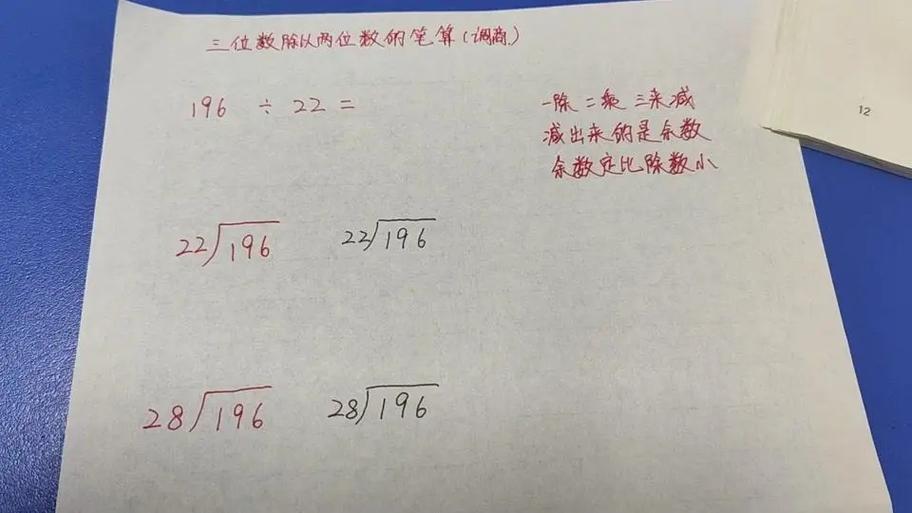 三位数除以两位数的笔算(调商)
196 ÷ 22 =
一除 二乘 三来减
减出来的是余数
余数定比除数小
12
22)196 22)196
28)196 28)196